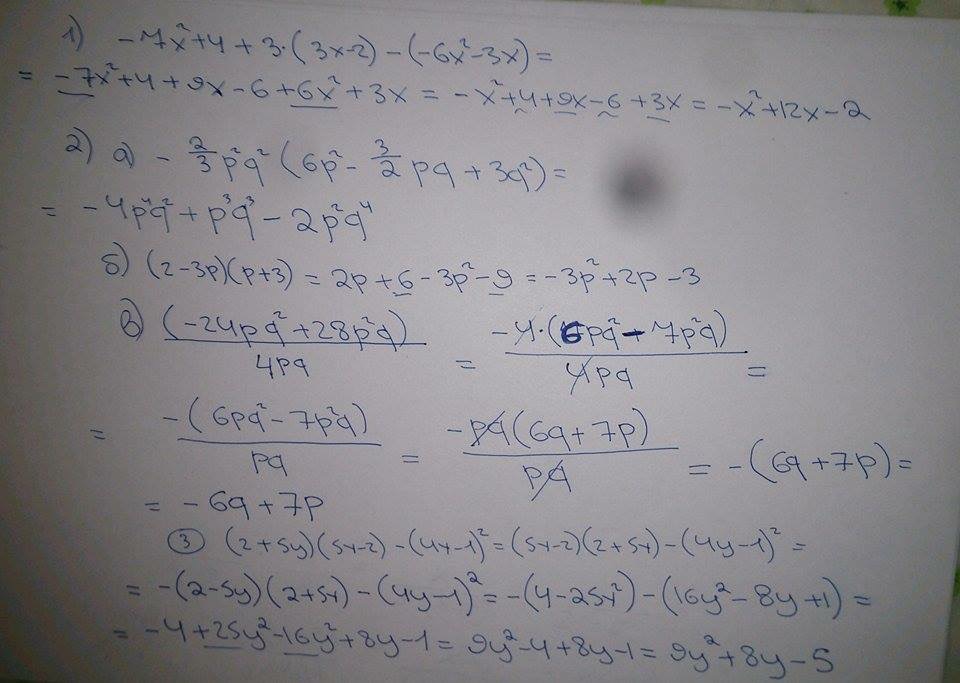 1) -7x²+4+3·(3x-2)-(-6x²-3x)=
= -7x²+4+9x-6+6x²+3x = -x²+4+9x-6+3x = -x²+12x-2
2) a) -2/3p²q²(6p²-3/2pq+3q²)=
= -4p⁴q²+p³q³-2p²q⁴
б) (2-3p)(p+3) = 2p+6-3p²-9 = -3p²+2p-3
в) (-24pq²+28p²q)/4pq = -4·(6pq²-7p²q)/4pq =
= -(6pq²-7p²q)/pq = -pq(6q+7p)/pq = -(6q+7p)=
= -6q+7p
3 (2+5y)(5y-2)-(4y-1)²=(5y-2)(2+5y)-(4y-1)²=
= -(2-5y)(2+5y)-(4y-1)²=-(4-25y²)-(16y²-8y+1)=
= -4+25y²-16y²+8y-1=9y²-4+8y-1=9y²+8y-5